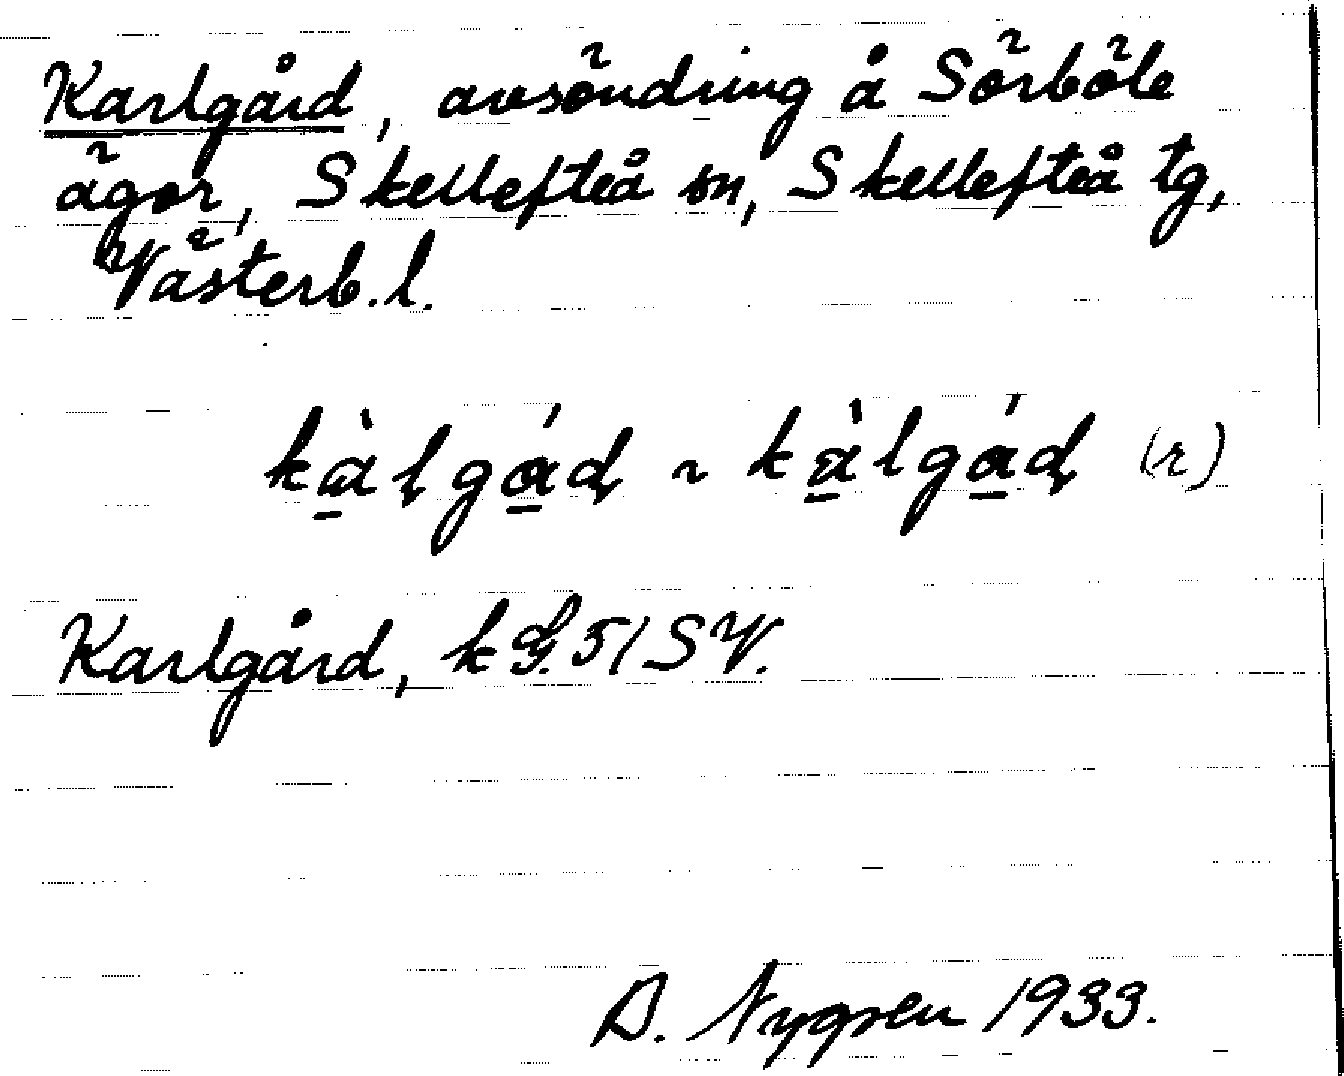 Karlgård, avsöndring å Sörböle
ägor, Skellefteå sn, Skellefteå tg,
Västerb. l.
kàlgád ~ kàlgád (r)
Karlgård, k G. 51 SV.
D. Nygren 1933.